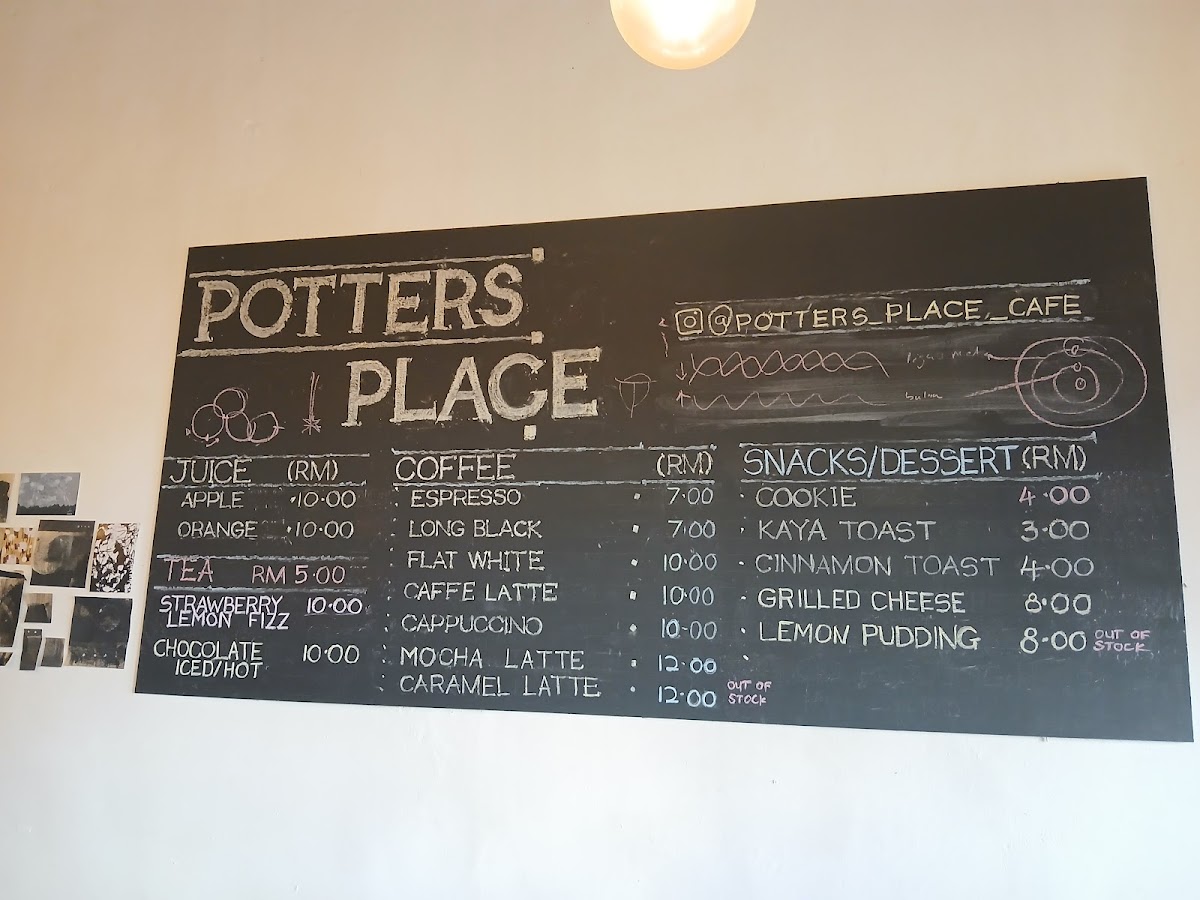 POTTERS
PLACE
@POTTERS_PLACE_CAFE
JUICE (RM)
APPLE 10.00
ORANGE 10.00
TEA RM 5.00
STRAWBERRY 10.00
LEMON FIZZ
CHOCOLATE 10.00
ICED/HOT
COFFEE (RM)
ESPRESSO 7.00
LONG BLACK 7.00
FLAT WHITE 10.00
CAFFE LATTE 10.00
CAPPUCCINO 10.00
MOCHA LATTE 12.00
CARAMEL LATTE 12.00 OUT OF
STOCK
SNACKS/DESSERT (RM)
COOKIE 4.00
KAYA TOAST 3.00
CINNAMON TOAST 4.00
GRILLED CHEESE 8.00
LEMON PUDDING 8.00 OUT OF
STOCK